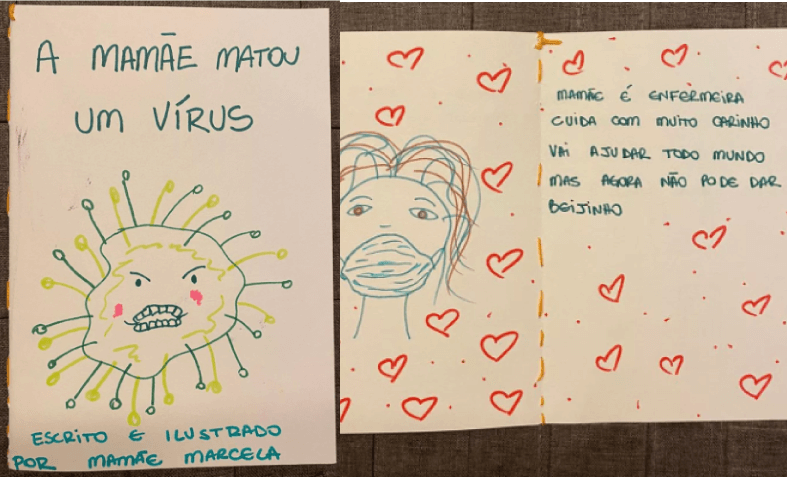 A MAMÃE MATOU
UM VÍRUS
ESCRITO E ILUSTRADO
POR MAMÃE MARCELA
MAMÃE É ENFERMEIRA
CUIDA COM MUITO CARINHO
VAI AJUDAR TODO MUNDO
MAS AGORA NÃO PODE DAR
BEIJINHO